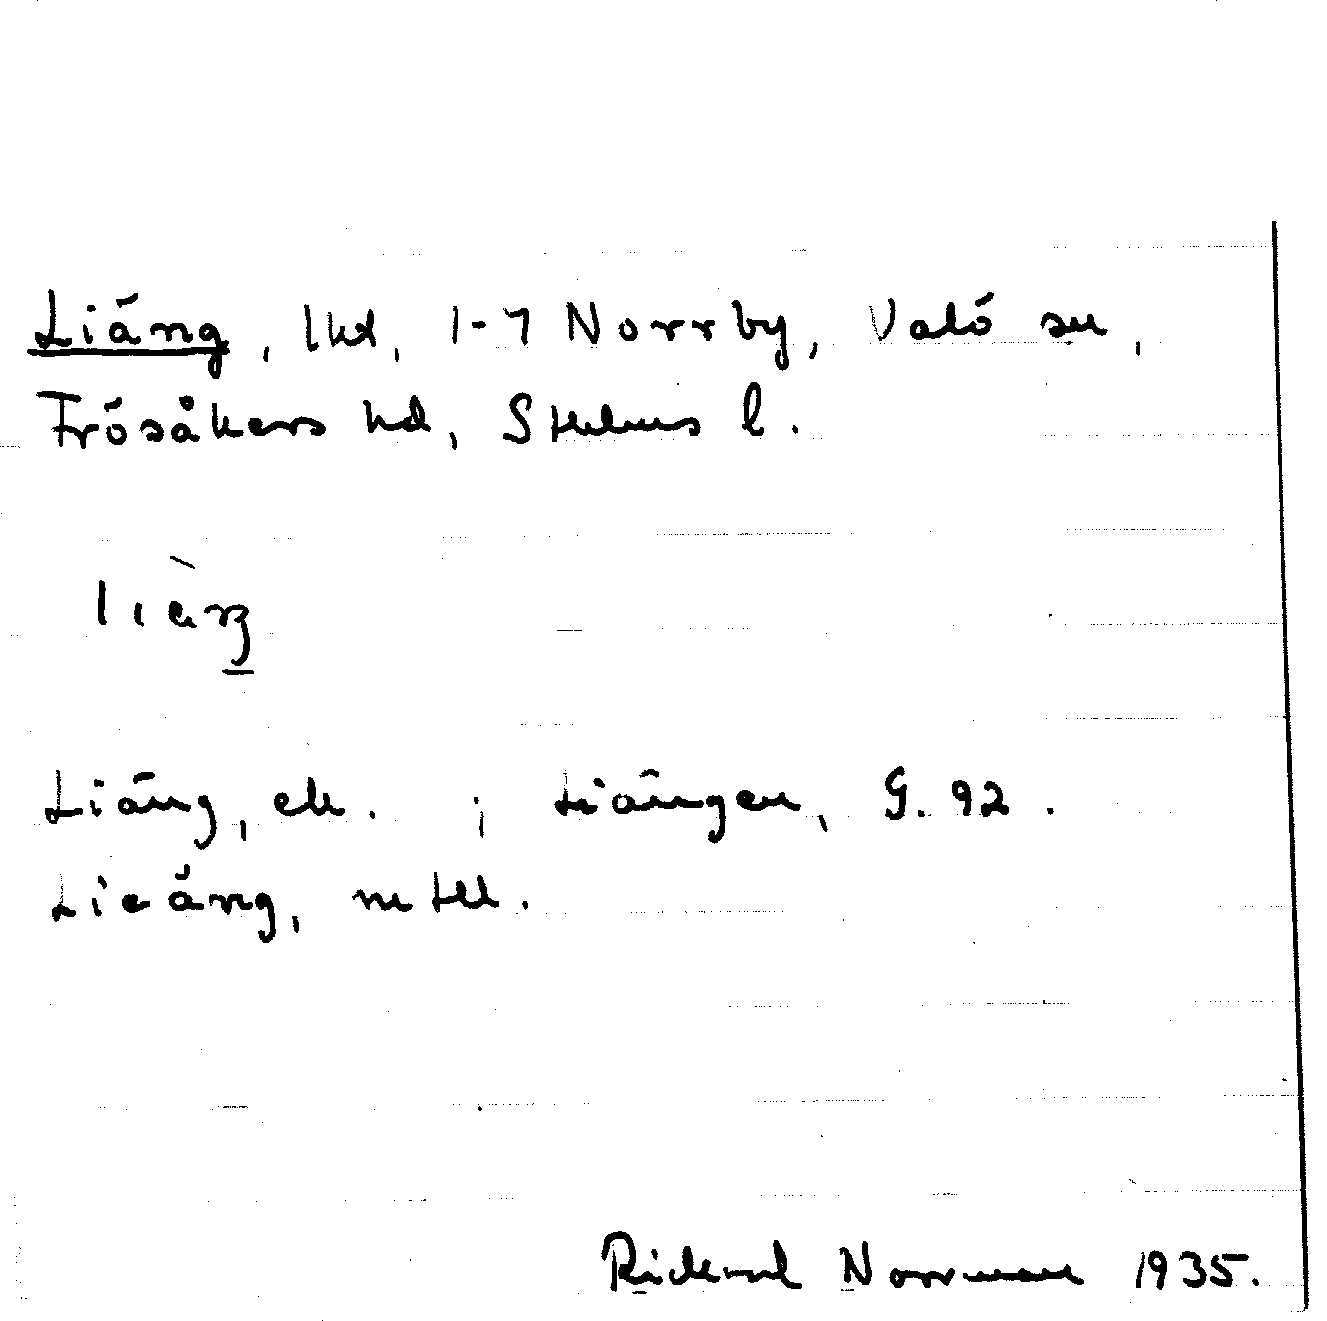 Liäng, lht, 1-7 Norrby, Valö sn,
Frösåkers hd, Sthlms l.
Liäng, ek. ; Liängen, G. 92.
Lieäng, mtll.
Rickard Norrman 1935.